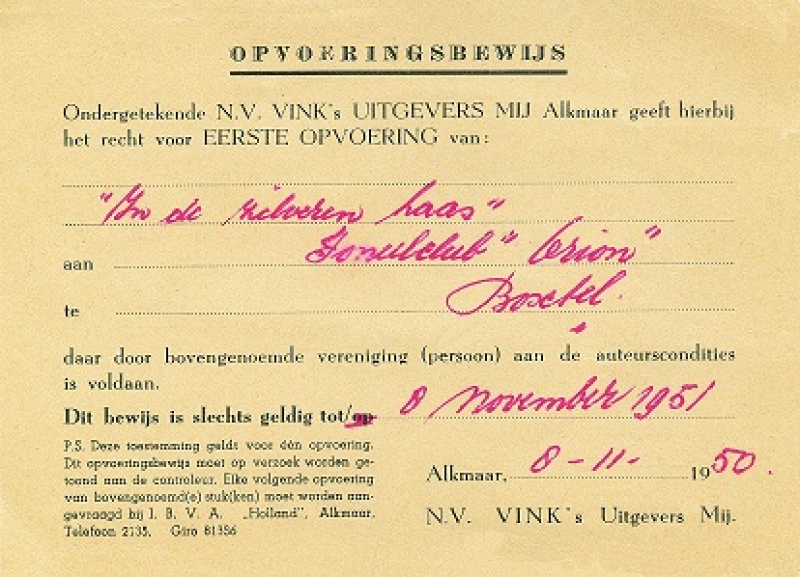 OPVOERINGSBEWIJS
Ondergetekende N.V. VINK's UITGEVERS MIJ Alkmaar geeft hierbij
het recht voor EERSTE OPVOERING van:
"In de zilveren haas"
aan Toneelclub "Orion"
te Boxtel.
daar door bovengenoemde vereniging (persoon) aan de auteurscondities
is voldaan.
Dit bewijs is slechts geldig tot/op 8 november 1951
P.S. Deze toestemming geldt voor één opvoering.
Dit opvoeringsbewijs moet op verzoek worden ge-
toond aan de controleur. Elke volgende opvoering
van bovengenoemd(e) stuk(ken) moet worden aan-
gevraagd bij I. B. V. A. „Holland", Alkmaar,
Telefoon 2135. Giro 81356
Alkmaar, 8-11- 1950.
N.V. VINK's Uitgevers Mij.